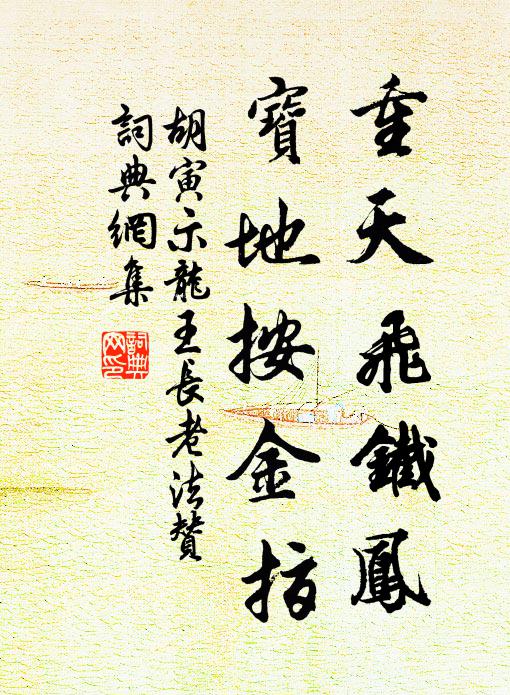 重天飛鐵鳳
寶地按金指
胡寅示龍王長老法贊
詞典網集
詞典
网印